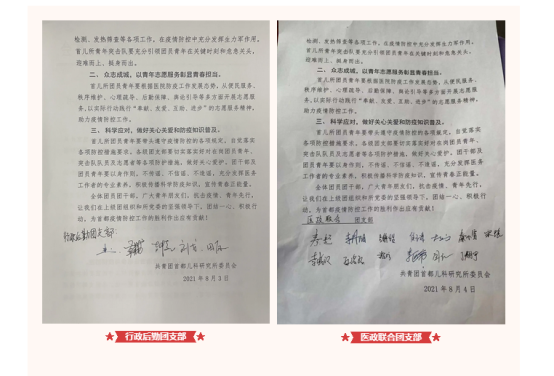 检测、发热筛查等各项工作，在疫情防控中充分发挥生力军作用。
首儿所青年突击队要充分引领团员青年在关键时刻和危急关头，
迎难而上、挺身而出。
二、众志成城，以青年志愿服务彰显青春担当。
首儿所团员青年要根据医院防疫工作发展态势，从便民服务、
秩序维护、心理疏导、后勤保障、舆论引导等多方面开展志愿服务，
以实际行动践行“奉献、友爱、互助、进步”的志愿服务精神，
助力疫情防控工作。
三、科学应对，做好关心关爱和防疫知识普及。
首儿所团员青年要带头遵守疫情防控的各项规定，自觉落实
各项防控措施要求，各级团支部要切实落实好对在岗团员青年、
突击队队员及志愿者等各项防护措施，做好关心爱护。团干部及
团员青年要以身作则，不传谣、不信谣、不造谣，充分发挥医务
工作者的专业素养，积极传播科学防疫知识，宣传青春正能量。
全体团员团干部、广大青年朋友们，抗击疫情，青年先行，
让我们在上级团组织和所党委的坚强领导下，团结一心、积极行
动，为首都疫情防控工作的胜利作出应有贡献！
行政后勤团支部
共青团首都儿科研究所委员会
2021年8月3日
行政后勤团支部
检测、发热筛查等各项工作，在疫情防控中充分发挥生力军作用。
首儿所青年突击队要充分引领团员青年在关键时刻和危急关头，
迎难而上、挺身而出。
二、众志成城，以青年志愿服务彰显青春担当。
首儿所团员青年要根据医院防疫工作发展态势，从便民服务、
秩序维护、心理疏导、后勤保障、舆论引导等多方面开展志愿服务，
以实际行动践行“奉献、友爱、互助、进步”的志愿服务精神，
助力疫情防控工作。
三、科学应对，做好关心关爱和防疫知识普及。
首儿所团员青年要带头遵守疫情防控的各项规定，自觉落实
各项防控措施要求，各级团支部要切实落实好对在岗团员青年、
突击队队员及志愿者等各项防护措施，做好关心爱护。团干部及
团员青年要以身作则，不传谣、不信谣、不造谣，充分发挥医务
工作者的专业素养，积极传播科学防疫知识，宣传青春正能量。
全体团员团干部、广大青年朋友们，抗击疫情，青年先行，
让我们在上级团组织和所党委的坚强领导下，团结一心、积极行
动，为首都疫情防控工作的胜利作出应有贡献！
医政联合 团支部
共青团首都儿科研究所委员会
2021年8月4日
医政联合团支部